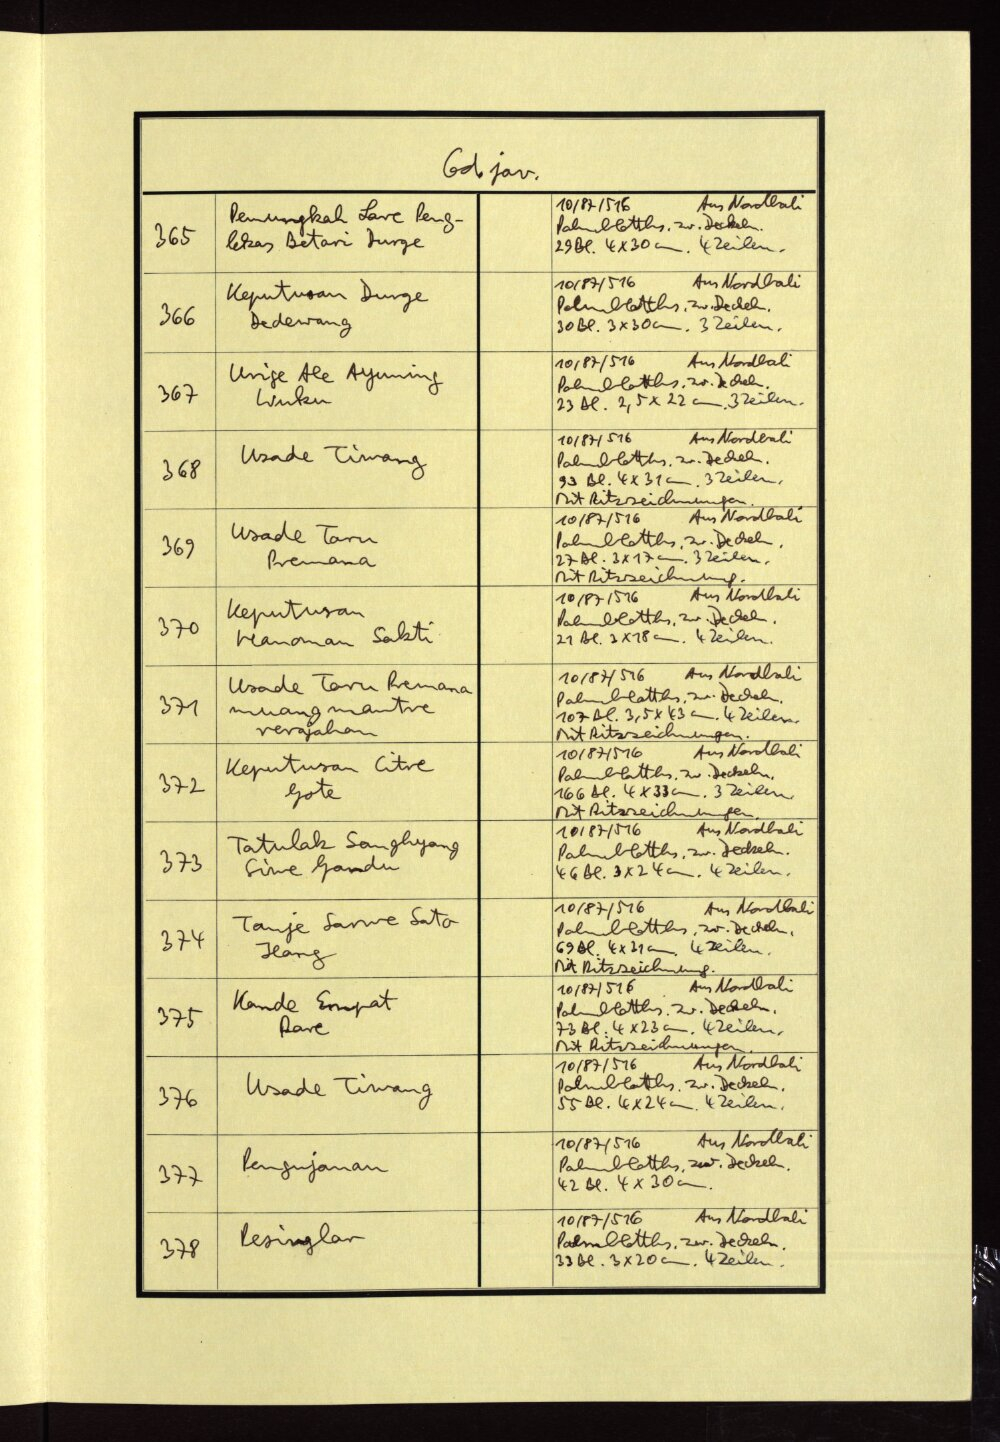 Cod jav.
365
Pemungkah Lare Peng-
lekas Betari Durge
10/87/516 Aus Nordbali
Palmblatths. zw. Deckeln.
29 Bl. 4 x 30 cm. 4 Zeilen.
366
Keputusan Durge
Dedewang
10/87/516 Aus Nordbali
Palmblatths. zw. Deckeln.
30 Bl. 3 x 30 cm. 3 Zeilen.
367
Urige Ale Ayuning
Wuku
10/87/516 Aus Nordbali
Palmblatths. zw. Deckeln.
23 Bl. 2,5 x 22 cm. 3 Zeilen.
368
Usade Tiwang
10/87/516 Aus Nordbali
Palmblatths. zw. Deckeln.
93 Bl. 4 x 31 cm. 3 Zeilen.
Mit Ritzzeichnungen.
369
Usade Taru
Premana
10/87/516 Aus Nordbali
Palmblatths. zw. Deckeln.
27 Bl. 3 x 17 cm. 3 Zeilen.
Mit Ritzzeichnung.
370
Keputusan
Hanoman Sakti
10/87/516 Aus Nordbali
Palmblatths. zw. Deckeln.
21 Bl. 3 x 18 cm. 4 Zeilen.
371
Usade Taru Premana
muang mantre
rerajahan
10/87/516 Aus Nordbali
Palmblatths. zw. Deckeln.
107 Bl. 3,5 x 43 cm. 4 Zeilen.
Mit Ritzzeichnungen.
372
Keputusan Citre
Gote
10/87/516 Aus Nordbali
Palmblatths. zw. Deckeln.
166 Bl. 4 x 33 cm. 3 Zeilen.
Mit Ritzzeichnungen.
373
Tatulak Sanghyang
Siwe Gandu
10/87/516 Aus Nordbali
Palmblatths. zw. Deckeln.
46 Bl. 3 x 24 cm. 4 Zeilen.
374
Tanje Sarwe Sato
Ilang
10/87/516 Aus Nordbali
Palmblatths. zw. Deckeln.
69 Bl. 4 x 21 cm. 4 Zeilen.
Mit Ritzzeichnung.
375
Kande Empat
Rare
10/87/516 Aus Nordbali
Palmblatths. zw. Deckeln.
73 Bl. 4 x 23 cm. 4 Zeilen.
Mit Ritzzeichnungen.
376
Usade Tiwang
10/87/516 Aus Nordbali
Palmblatths. zw. Deckeln.
55 Bl. 4 x 24 cm. 4 Zeilen.
377
Pengujanan
10/87/516 Aus Nordbali
Palmblatths. zw. Deckeln.
42 Bl. 4 x 30 cm.
378
Pesinglar
10/87/516 Aus Nordbali
Palmblatths. zw. Deckeln.
33 Bl. 3 x 20 cm. 4 Zeilen.